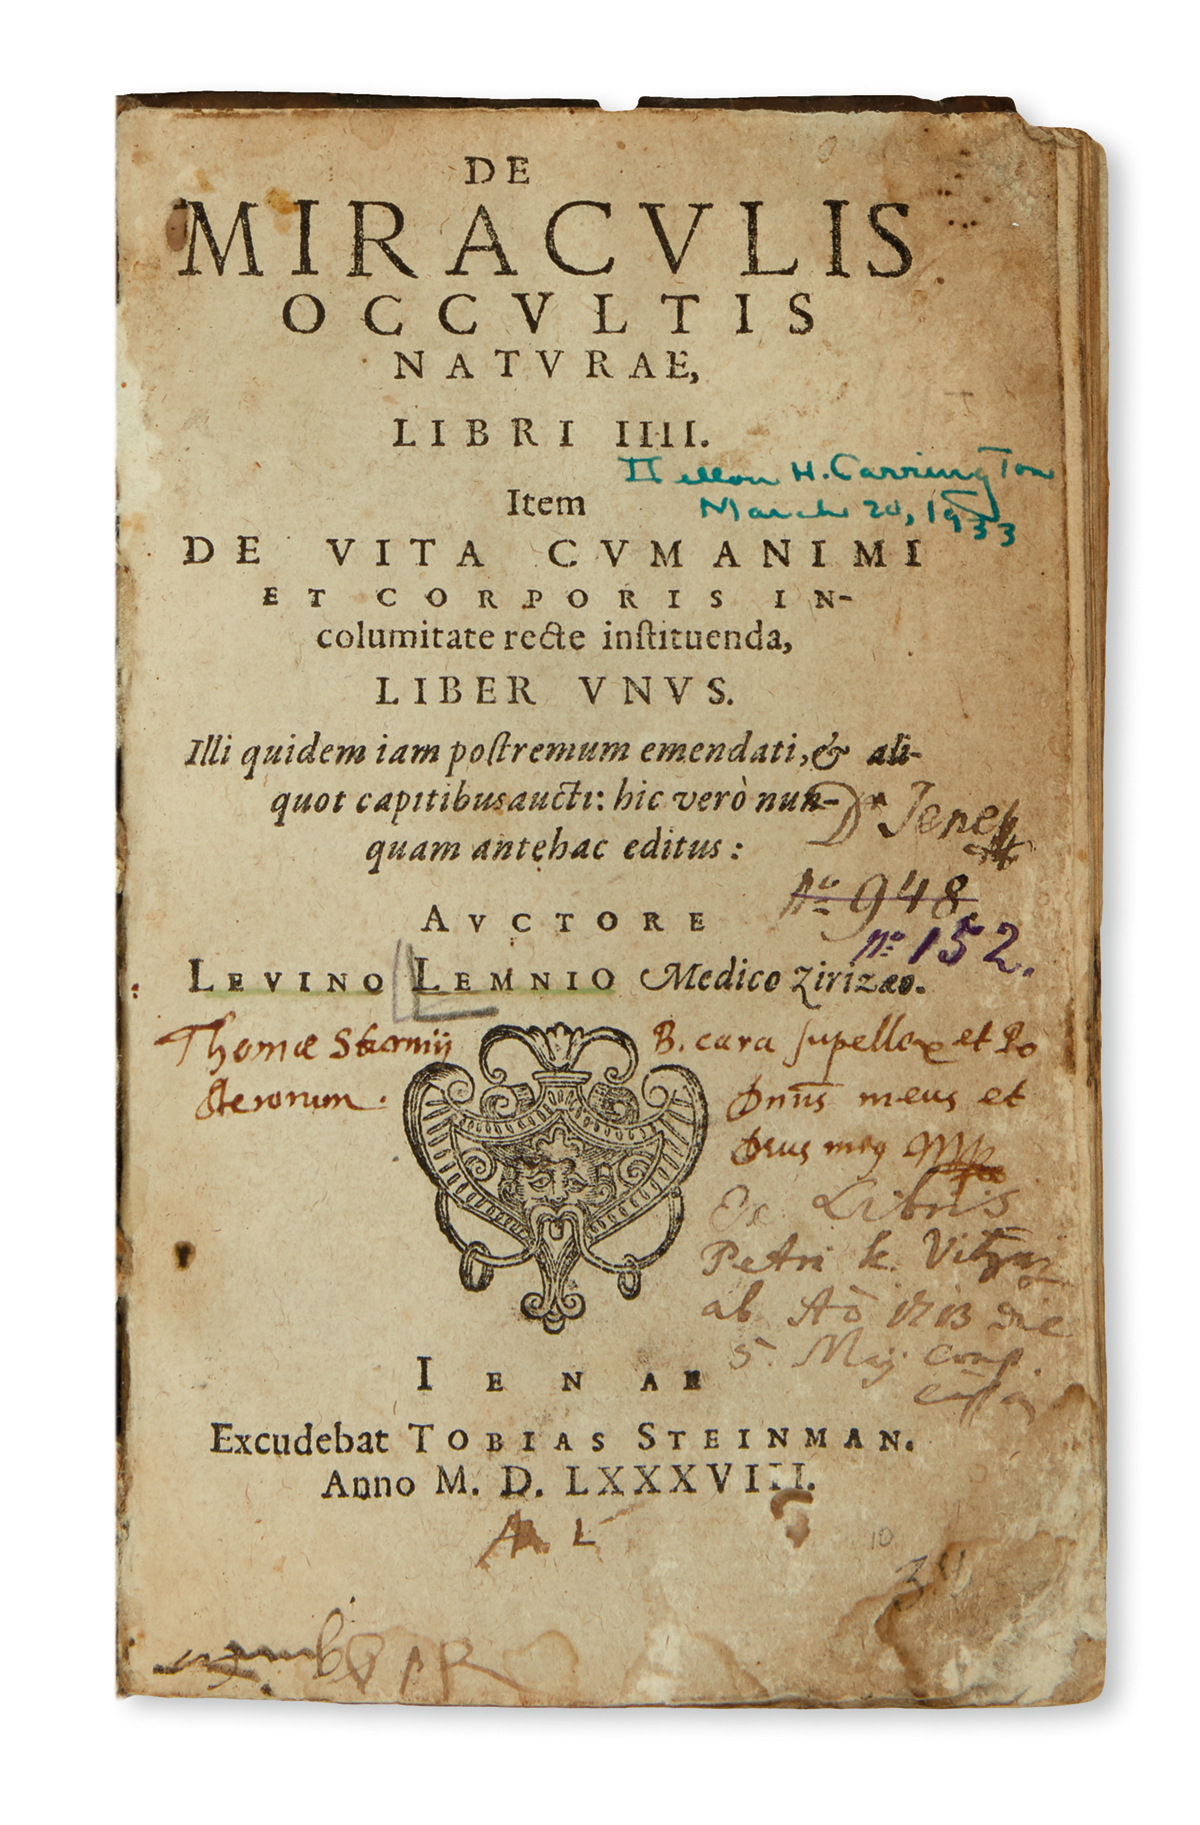 DE
MIRACVLIS
OCCVLTIS
NATVRAE,
LIBRI IIII.
H. Carrington
Item
March 20, 1933
DE VITA CVM ANIMI
ET CORPORIS IN-
columitate recte inſtituenda,
LIBER VNVS.
Illi quidem iam poſtremum emendati, & ali-
quot capitibus aucti: hic verò nun-
quam antehac editus:
Nº 948
AVCTORE
Nº 152.
LEVINO LEMNIO Medico Zirizæo.
Thomæ
B. cara ſupellex et
meus et
Ex Libris
Petri
ab Aō 1713 die
5. Maij
IENAE
Excudebat TOBIAS STEINMAN.
Anno M. D. LXXXVIII.
A. L
10